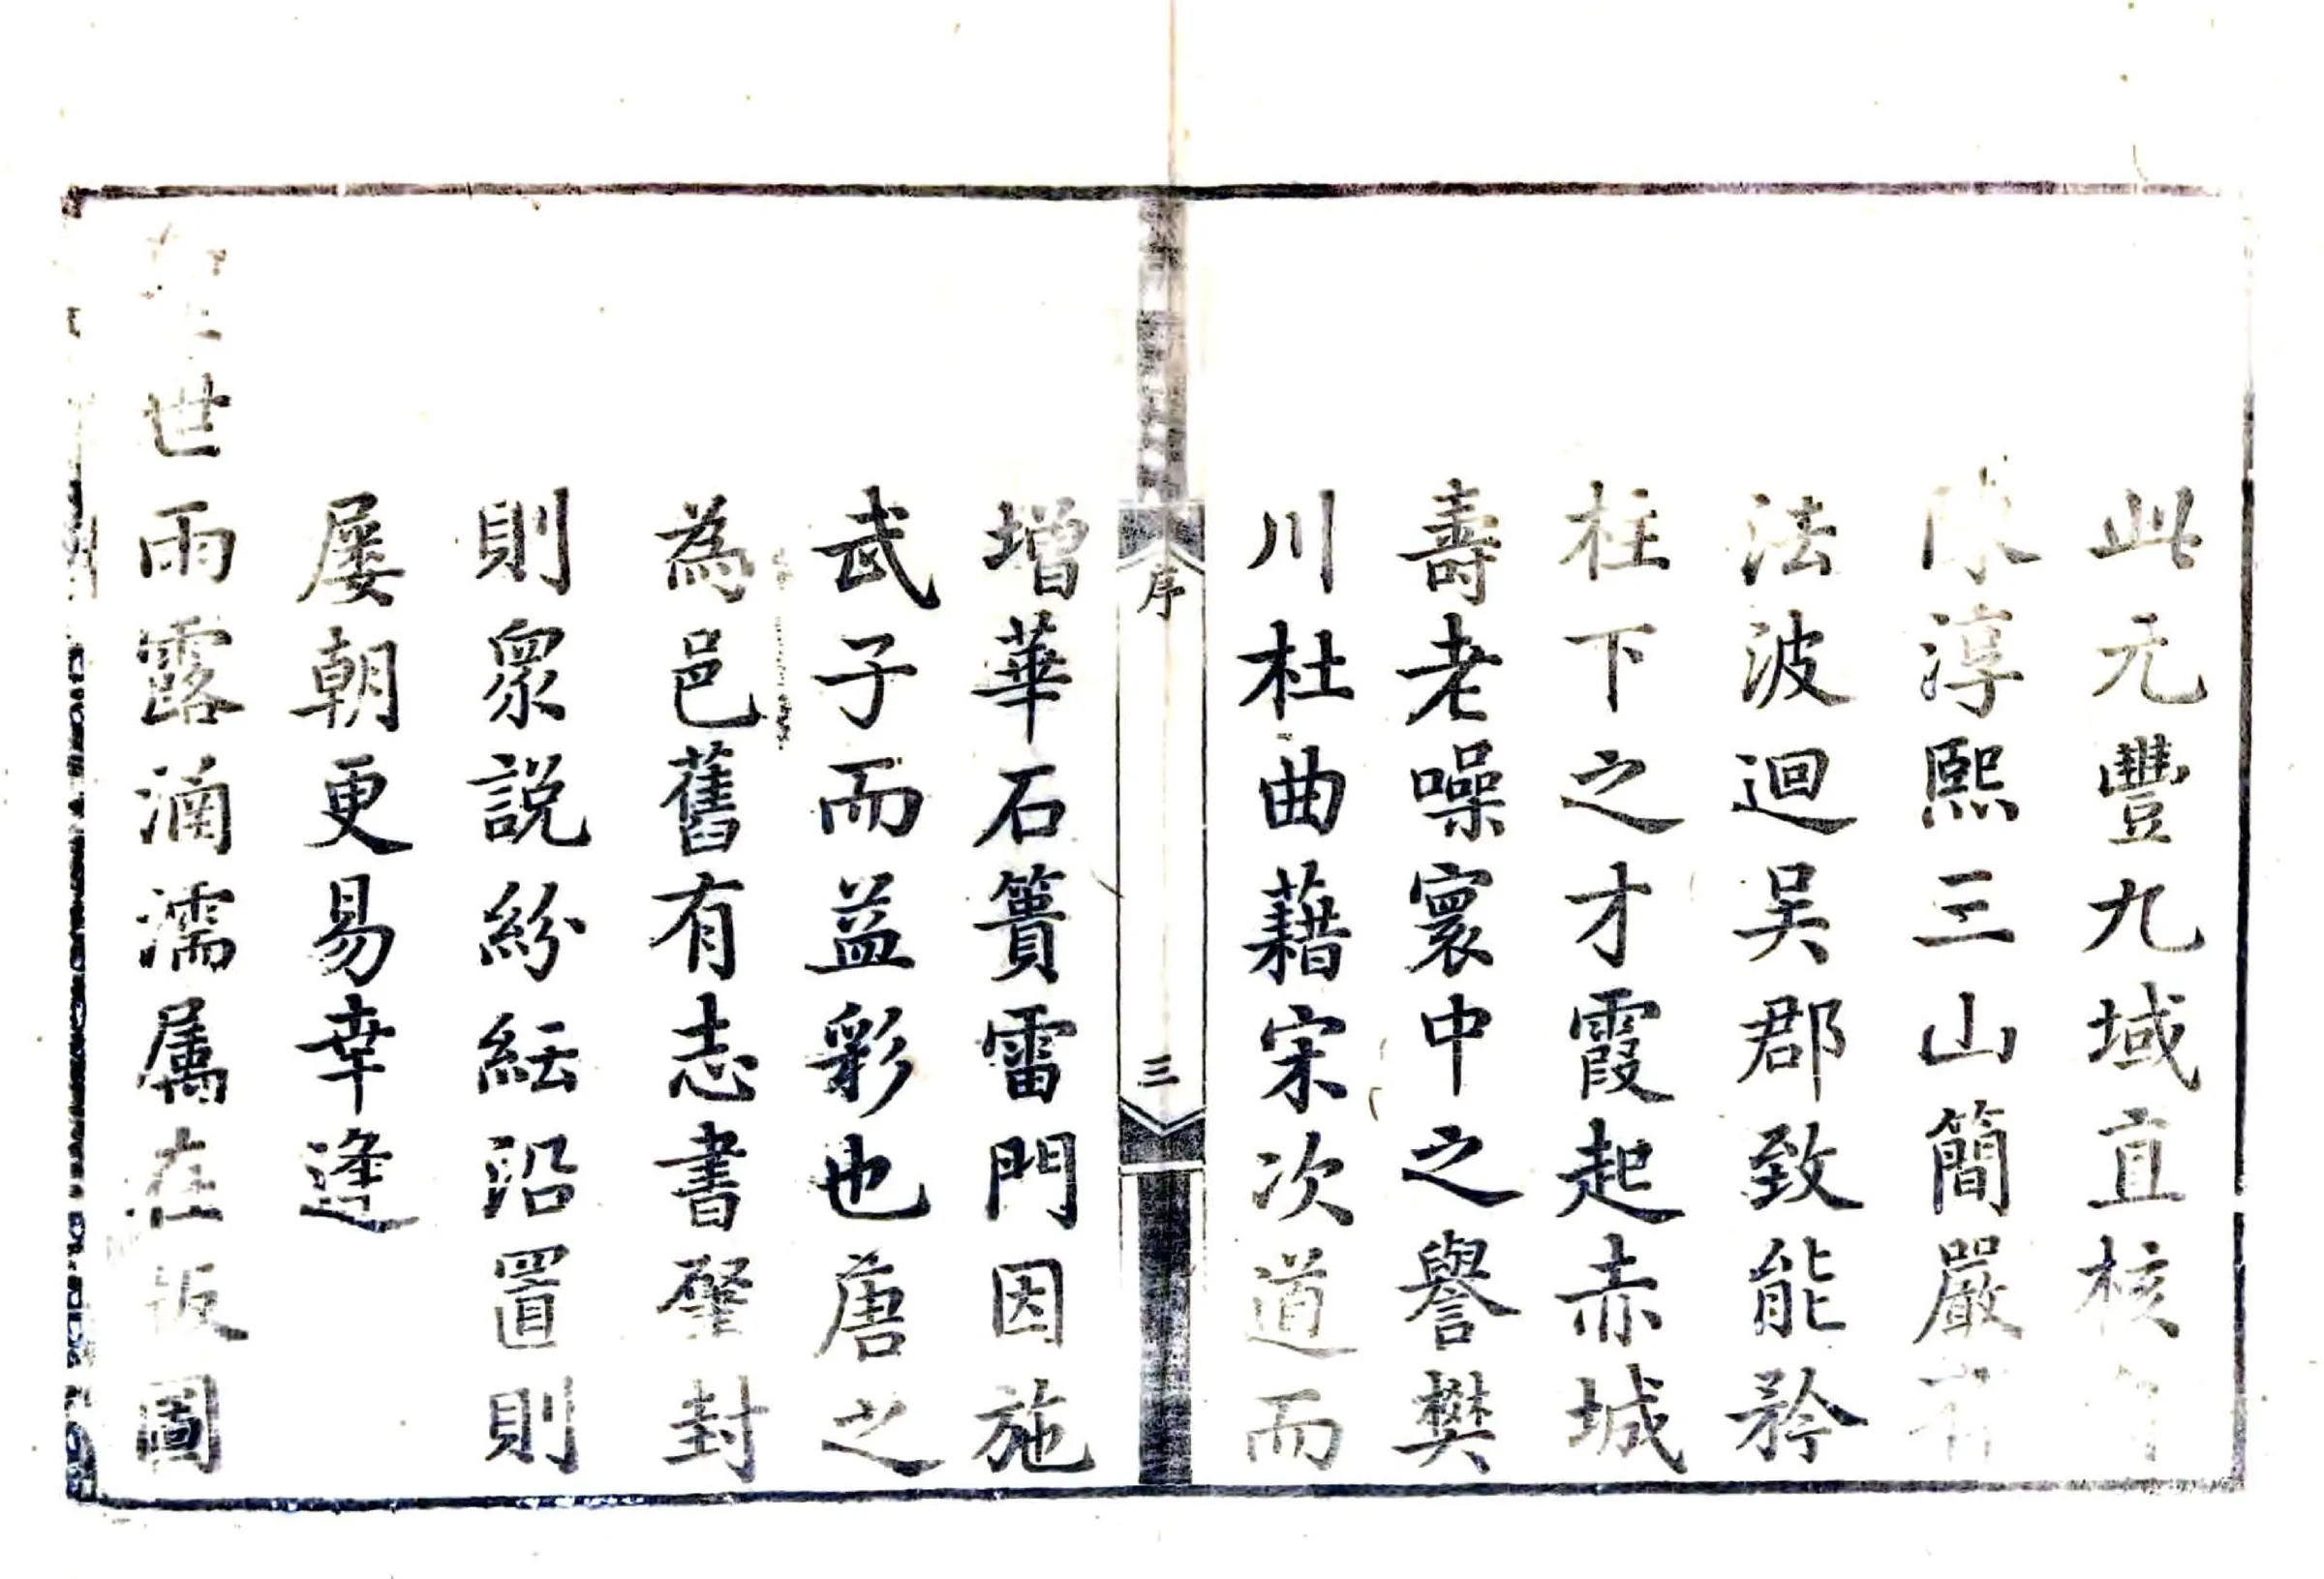 此元豐九域直核
淳熙三山簡嚴有
法波迴吳郡致能矜
柱下之才霞起赤城
壽老噪寰中之譽樊
川杜曲藉宋次道而
序
三
增華石簣雷門因施
武子而益彩也唐之
為邑舊有志書肇封
則眾説紛紜沿置則
屡朝更易幸逢
世雨露湳濡属在版圖